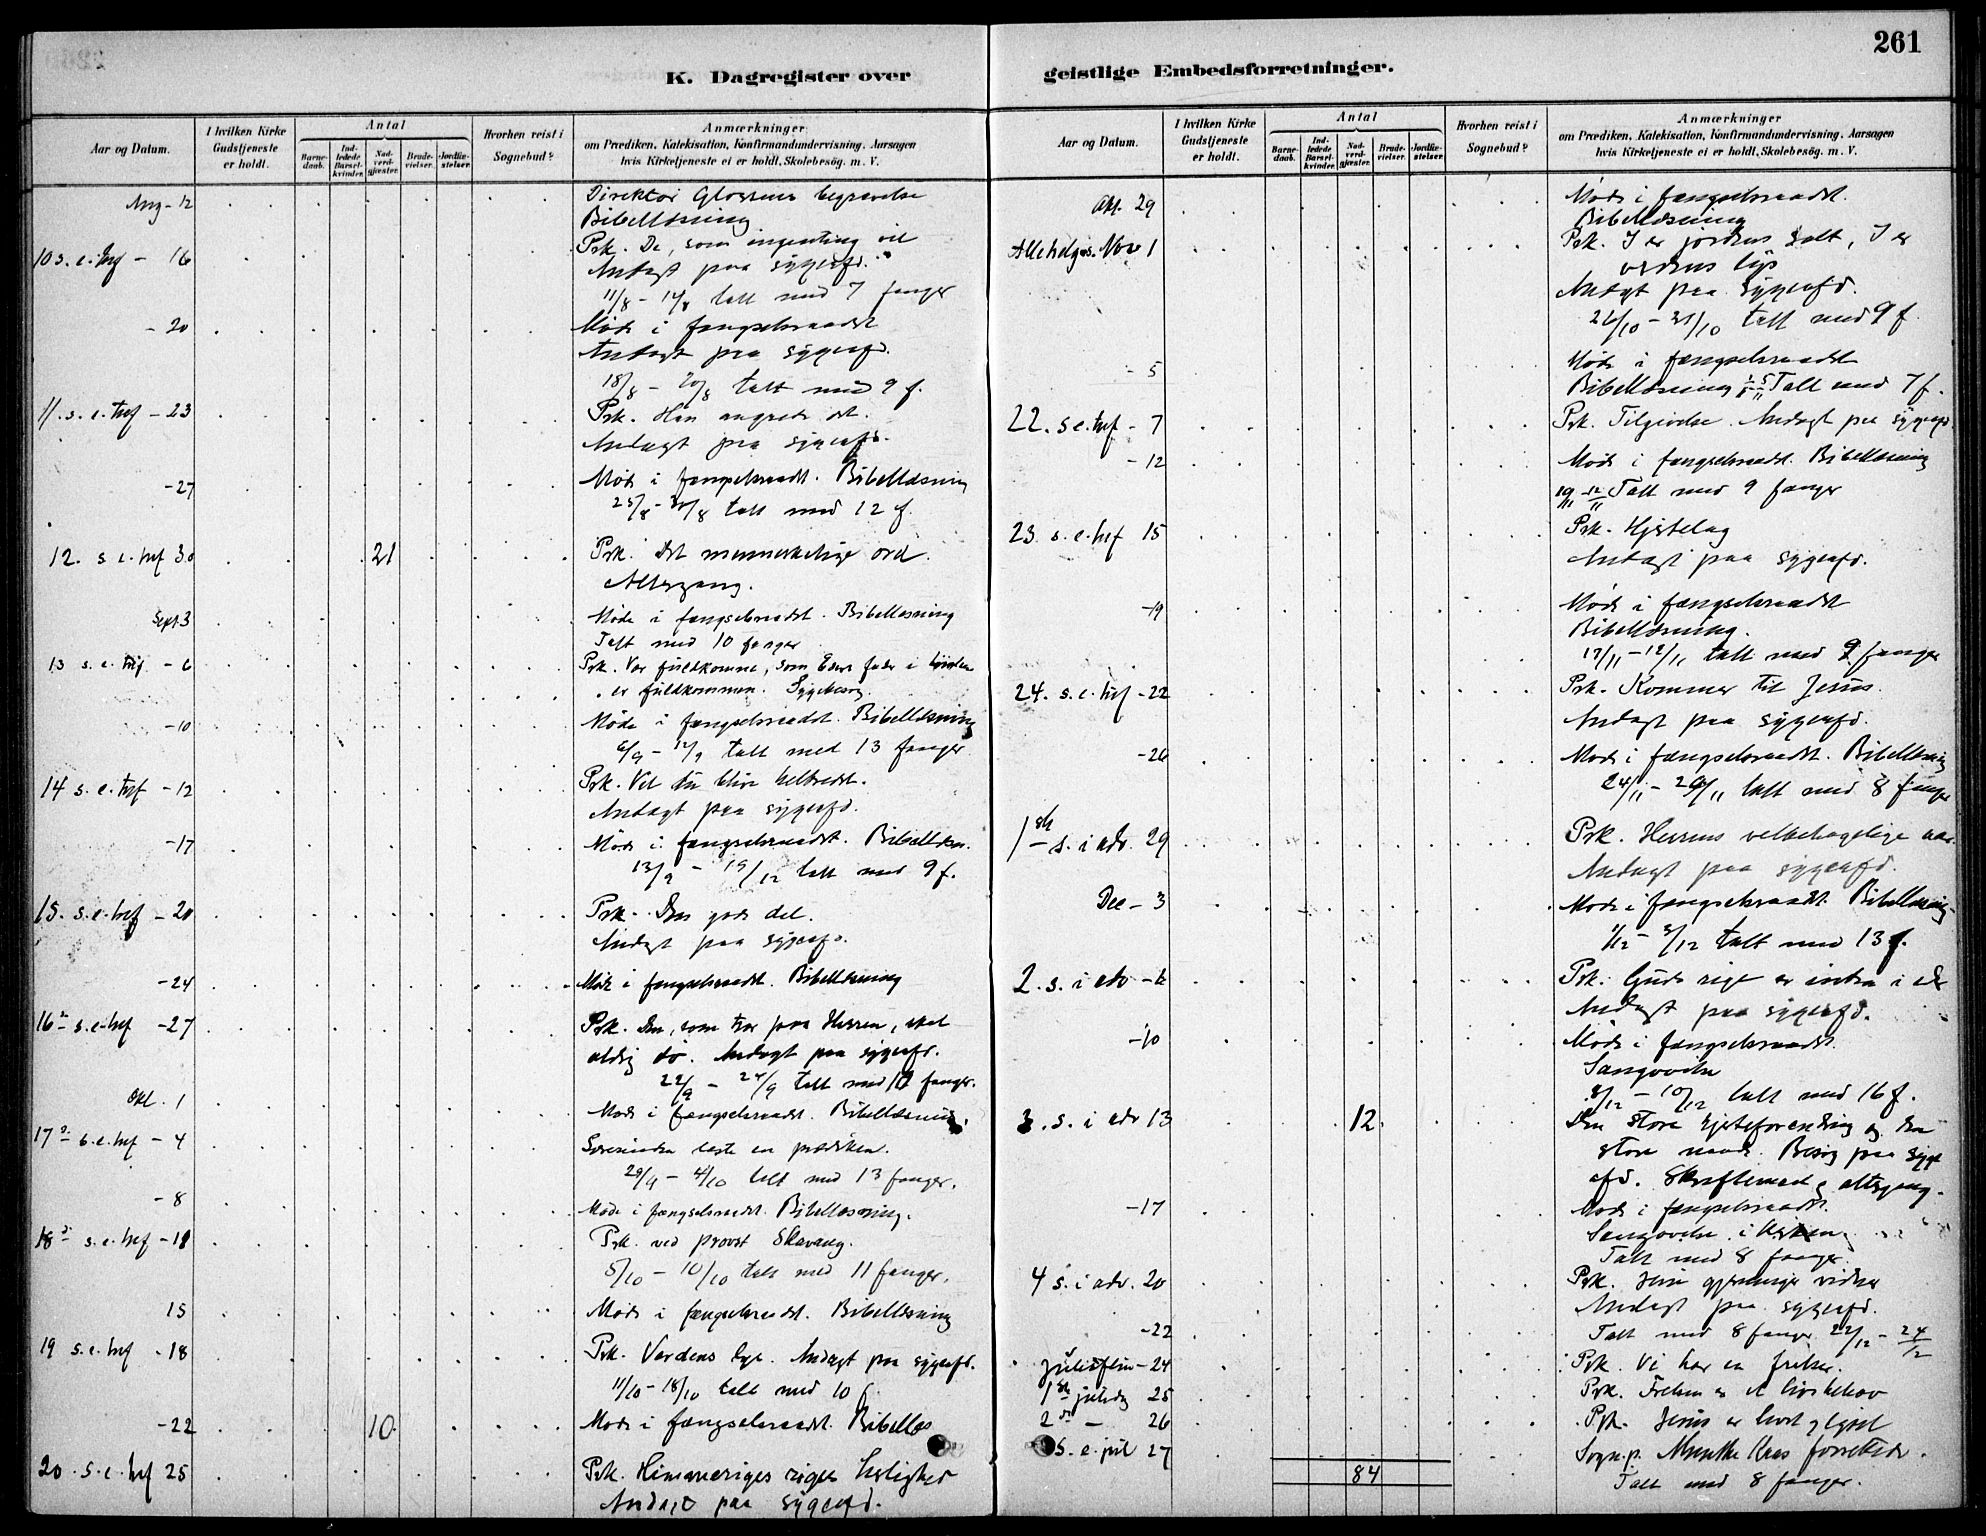 261
K. Dagregister over geistlige Embedsforretninger.
Aar og Datum.
I hvilken Kirke Gudstjeneste er holdt.
Antal
Barnedaab.
Indledede Barselkvinder.
Nadverdgjæster.
Brudevielser.
Jordfæstelser.
Hvorhen reist i Sognebud?
Anmærkninger
om Prædiken, Katekisation, Konfirmandundervisning, Aarsagen
hvis Kirketjeneste ei er holdt, Skolebesøg. m. V.
Aug - 12 Direktør begravelse
Bibellæsning
10 s. e. - 16 Prk. De, som ingenting
Andagt paa sygeafd.
11/8 - talt med 7 fanger
- 20 Møde i fængselsraadet
Andagt paa sygeafd.
18/8 - 20/8 talt med 9 f.
11. s. e. tref - 23 Prk. Han angrede det.
Andagt paa sygeafd.
- 27 Møde i fængselsraadet. Bibellæsning
25/8 - talt med 12 f.
12. s e. tref 30 21 Prk. Det menneskelige ord.
Altergang.
Sept 3 Møde i fængselsraadet. Bibellæsning
Talt med 10 fanger
13 s. e. - 6 Prk. Vær fuldkomne, som Eders fader i himlen
er fuldkommen.
- 10 Møde i fængselsraadet. Bibellæsning
talt med 13 fanger
14 s. e. tref - 12 Prk. Vil du blive helbredet.
Andagt paa sygeafd.
- 17 Møde i fængselsraadet.
talt med 9 f.
15. s. e. tref - 20 Prk. Den gode del.
Andagt paa sygeafd.
- 24 Møde i fængselsraadet. Bibellæsning
16 s. e. tref - 27 Prk. Den, som tror paa Herren, skal
aldrig dø. Andagt paa sygeafd.
22/9 - talt med fanger.
Okt. 1 Møde i fængselsraadet. Bibellæsning.
17 s. e. tref - 4 læste en prædiken.
29/9 - 4/10 talt med 13 fanger.
- 8 Møde i fængselsraadet. Bibellæsning.
18 s. e. tref - 11 Prk. ved provst
5/10 - 10/10 talt med 11 fanger.
15 Møde i fængselsraadet. Bibellæsning
19 s. e. tref - 18 Prk. Verdens lys. Andagt paa sygeafd.
11/10 - 18/10 talt med 10 f.
- 22 10 Møde i fængselsraadet. Bibellæs
20. s. e. tref 25 Prk. Himmeriges riges herlighed
Andagt paa sygeafd.
Aar og Datum.
I hvilken Kirke Gudstjeneste er holdt.
Antal
Barnedaab.
Indledede Barselkvinder.
Nadverdgjæster.
Brudevielser.
Jordfæstelser.
Hvorhen reist i Sognebud?
Anmærkninger
om Prædiken, Katekisation, Konfirmandundervisning, Aarsagen
hvis Kirketjeneste ei er holdt, Skolebesøg. m. V.
Okt. 29 Møde i fængselsraadet.
Bibellæsning
Allehelgens. Nov 1 Prk. I er jordens salt, I er
verdens lys
Andagt paa sygeafd.
26/10 - 31/10 talt med 9 f.
- 5 Møde i fængselsraadet
Bibellæsning Talt med 7 f.
22. s e. tref - 7 Prk. Tilgivelse. Andagt paa sygeafd
- 12 Møde i fængselsraadet. Bibellæsning
Talt med 9 fanger
23. s. e. tref 15 Prk.
Andagt paa sygeafd.
- 19 Møde i fængselsraadet
Bibellæsning.
talt med 9 fanger
24. s. e. tref - 22 Prk. Kommer til Jesus.
Andagt paa sygeafd.
- 26 Møde i fængselsraadet. Bibellæsning
24/11 - talt med 8 fanger
1ste s. i adv. 29 Prk. Herrens velbehagelige aar.
Andagt paa sygeafd.
Dec - 3 Møde i fængselsraadet. Bibellæsning
1/12 - 3/12 talt med 13 f.
2. s. i adv - 6 Prk. Guds rige er inden i eder
Andagt paa sygeafd.
- 10 Møde i fængselsraadet.
Sangøvelse
8/12 - 10/12 talt med 16 f.
3. s. i adv 13 12 Den store og den
store naade. Besøg paa syge
afd. Skriftemaal og altergang.
- 17 Møde i fængselsraadet.
Sangøvelse i kirken
Talt med 8 fanger
4 s. i adv. 20 Prk. gjerninger vidner
Andagt paa sygeafd.
- 22 Talt med 8 fanger 22/12 - 24/12
Juleaften - 24 Prk. Vi har en frelser.
1ste juledag 25 Prk. Frelsen er et
2den - 26 Prk. Jesus er livet og lyset
S. e. jul 27 Sogn.p. Munthe Kaas forrettede.
84 Talt med 8 fanger.